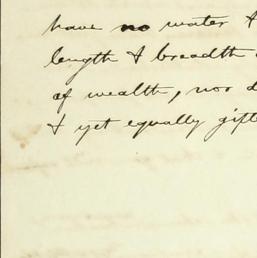 have no water &
length & breadth
of wealth, nor
& yet equally